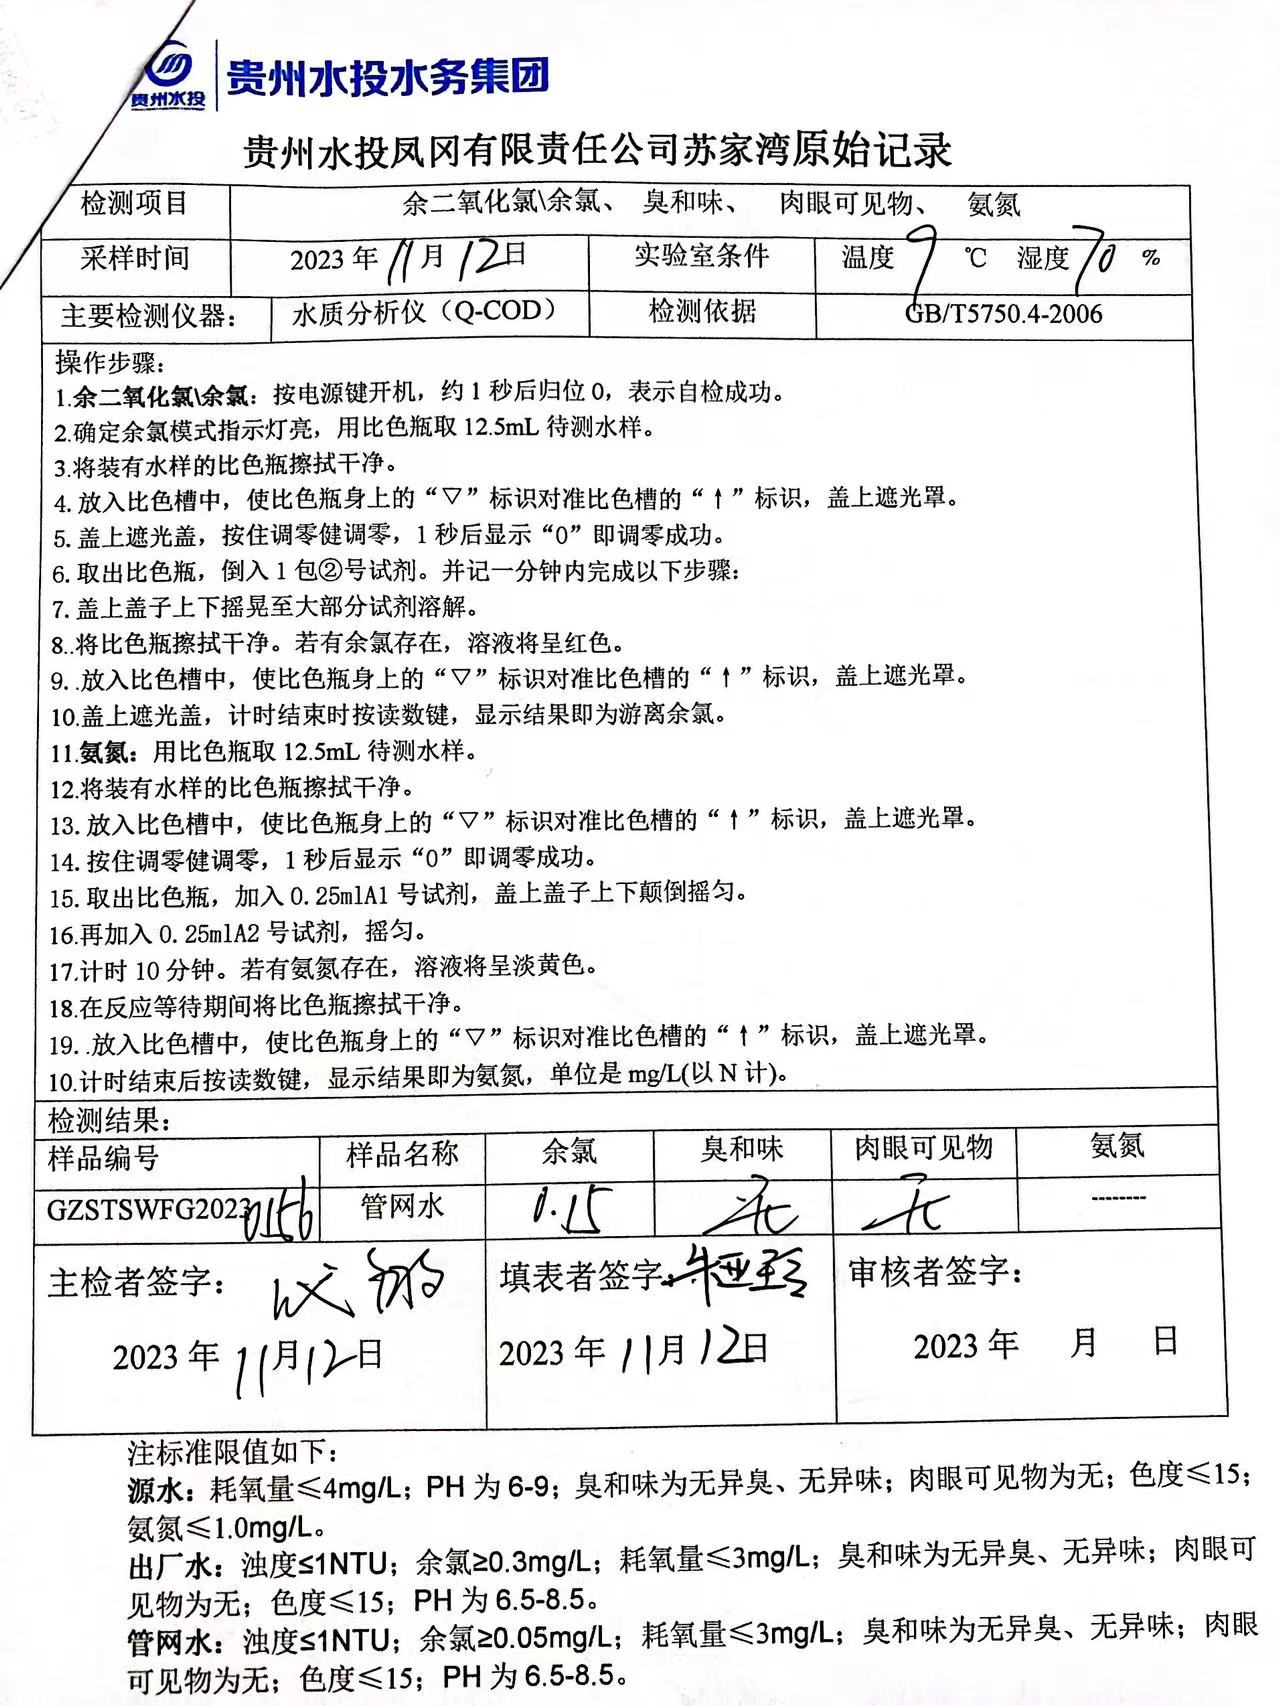 贵州水投
贵州水投水务集团
贵州水投凤冈有限责任公司苏家湾原始记录
检测项目 余二氧化氯\余氯、 臭和味、 肉眼可见物、 氨氮
采样时间 2023年11月12日 实验室条件 温度9℃ 湿度70%
主要检测仪器： 水质分析仪（Q-COD） 检测依据 GB/T5750.4-2006
操作步骤：
1.余二氧化氯\余氯：按电源键开机，约1秒后归位0，表示自检成功。
2.确定余氯模式指示灯亮，用比色瓶取12.5mL待测水样。
3.将装有水样的比色瓶擦拭干净。
4.放入比色槽中，使比色瓶身上的“▽”标识对准比色槽的“↑”标识，盖上遮光罩。
5.盖上遮光盖，按住调零健调零，1秒后显示“0”即调零成功。
6.取出比色瓶，倒入1包②号试剂。并记一分钟内完成以下步骤：
7.盖上盖子上下摇晃至大部分试剂溶解。
8..将比色瓶擦拭干净。若有余氯存在，溶液将呈红色。
9..放入比色槽中，使比色瓶身上的“▽”标识对准比色槽的“↑”标识，盖上遮光罩。
10.盖上遮光盖，计时结束时按读数键，显示结果即为游离余氯。
11.氨氮：用比色瓶取12.5mL待测水样。
12.将装有水样的比色瓶擦拭干净。
13.放入比色槽中，使比色瓶身上的“▽”标识对准比色槽的“↑”标识，盖上遮光罩。
14.按住调零健调零，1秒后显示“0”即调零成功。
15.取出比色瓶，加入0.25mlA1号试剂，盖上盖子上下颠倒摇匀。
16.再加入0.25mlA2号试剂，摇匀。
17.计时10分钟。若有氨氮存在，溶液将呈淡黄色。
18.在反应等待期间将比色瓶擦拭干净。
19..放入比色槽中，使比色瓶身上的“▽”标识对准比色槽的“↑”标识，盖上遮光罩。
10.计时结束后按读数键，显示结果即为氨氮，单位是mg/L(以N计)。
检测结果：
样品编号 样品名称 余氯 臭和味 肉眼可见物 氨氮
GZSTSWFG20230156 管网水 0.15 无 无 --------
主检者签字： 填表者签字： 审核者签字：
2023年11月12日 2023年11月12日 2023年 月 日
注标准限值如下：
源水：耗氧量≤4mg/L；PH为6-9；臭和味为无异臭、无异味；肉眼可见物为无；色度≤15；
氨氮≤1.0mg/L。
出厂水：浊度≤1NTU；余氯≥0.3mg/L；耗氧量≤3mg/L；臭和味为无异臭、无异味；肉眼可
见物为无；色度≤15；PH为6.5-8.5。
管网水：浊度≤1NTU；余氯≥0.05mg/L；耗氧量≤3mg/L；臭和味为无异臭、无异味；肉眼
可见物为无；色度≤15；PH为6.5-8.5。